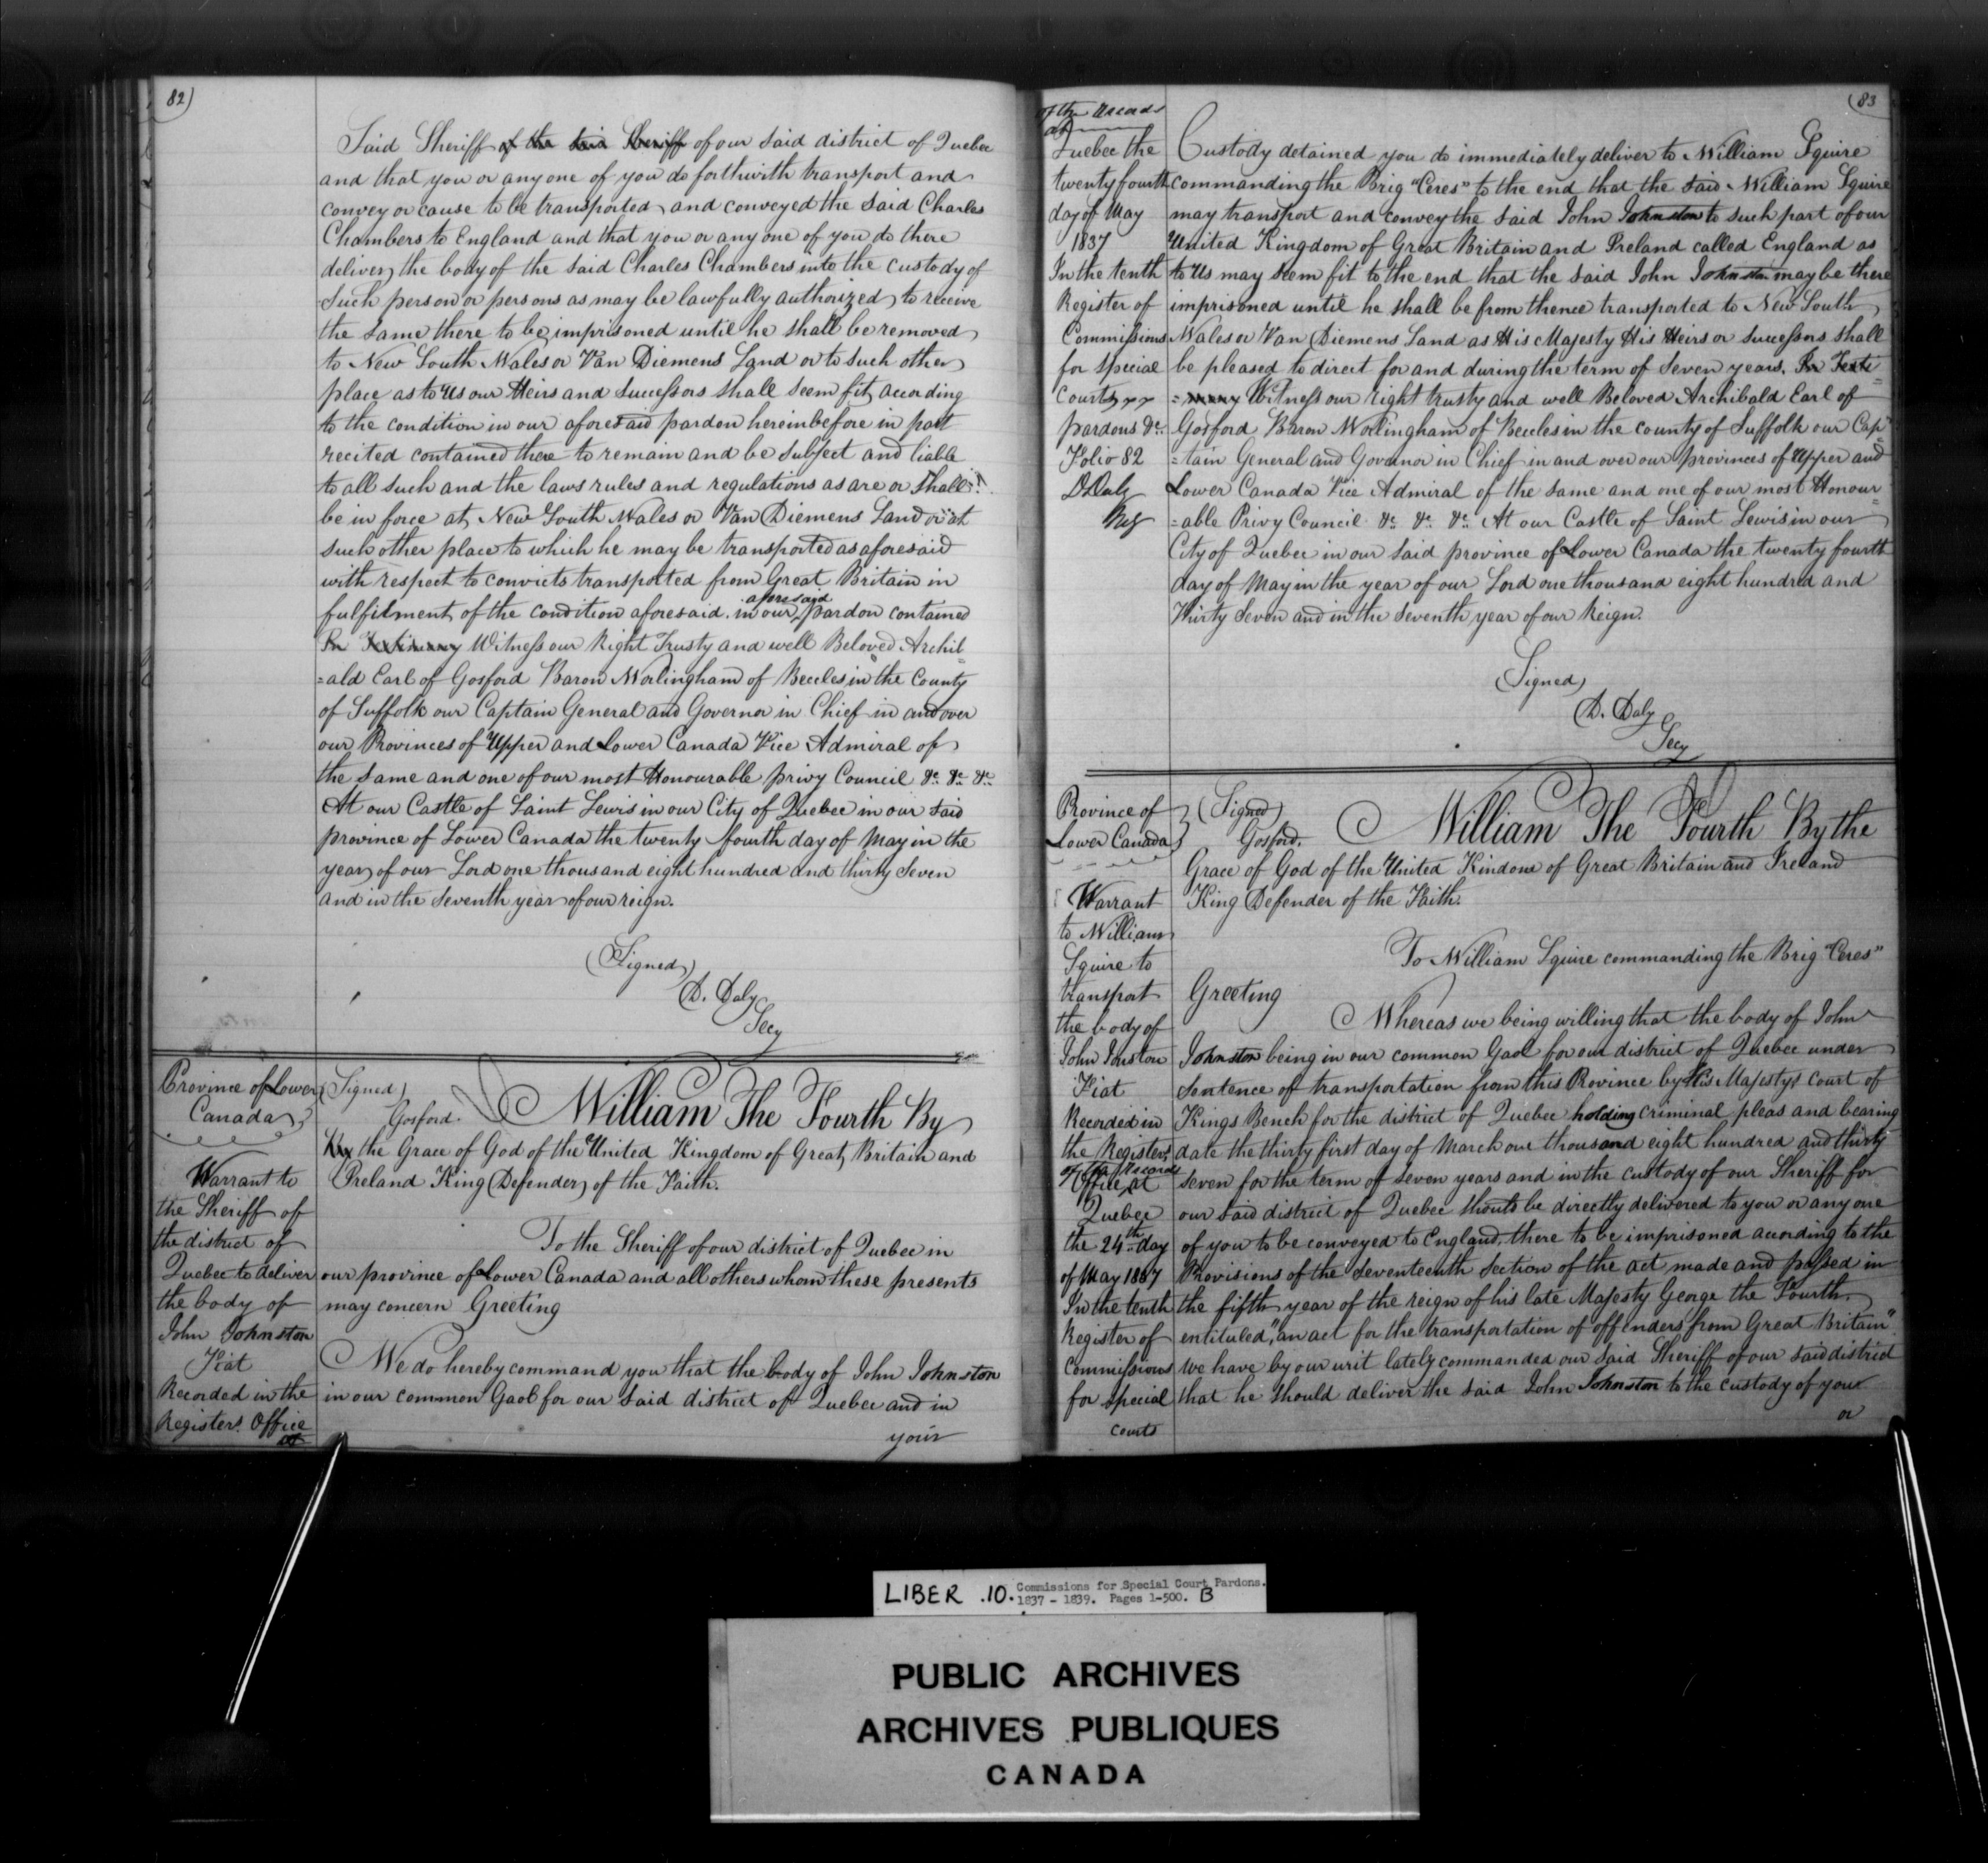 82)
Said Sheriff of the said Sheriff of our said district of Quebec
and that you or any one of you do forthwith transport and
convey or cause to be transported and conveyed the said Charles
Chambers to England and that you or any one of you do there
deliver the body of the said Charles Chambers into the custody of
such person or persons as may be lawfully authorized to receive
the same there to be imprisoned until he shall be removed
to New South Wales or Van Diemens Land or to such other
place as to Us our Heirs and Successors shall seem fit according
to the condition in our aforesaid pardon hereinbefore in part
recited contained there to remain and be subject and liable
to all such and the laws rules and regulations as are or shall
be in force at New South Wales or Van Diemens Land or at
such other place to which he may be transported as aforesaid
with respect to convicts transported from Great Britain in
fulfilment of the condition aforesaid in our aforesaid pardon contained
In Testimony Witness our Right Trusty and well Beloved Archib
=ald Earl of Gosford Baron Worlingham of Beccles in the County
of Suffolk our Captain General and Governor in Chief in and over
our Provinces of Upper and Lower Canada Vice Admiral of
the same and one of our most Honourable privy Council &c &c &c
At our Castle of Saint Lewis in our City of Quebec in our said
province of Lower Canada the twenty fourth day of May in the
year of our Lord one thousand eight hundred and thirty seven
and in the seventh year of our reign.
(Signed)
D. Daly
Secy
Province of Lower
Canada
Warrant to
the Sheriff of
the district of
Quebec to deliver
the body of
John Johnston
Fiat
Recorded in the
Registers Office
at
(Signed)
Gosford.
William The Fourth By
By the Grace of God of the United Kingdom of Great Britain and
Ireland King Defender of the Faith.
To the Sheriff of our district of Quebec in
our province of Lower Canada and all others whom these presents
may concern Greeting
We do hereby command you that the body of John Johnston
in our common Gaol for our said district of Quebec and in
your
(83
of the Records
at
Quebec the
twenty fourth
day of May
1837
In the tenth
Register of
Commissions
for special
Courts
pardons &c
Folio 82
D Daly
Reg
Custody detained you do immediately deliver to William Squire
commanding the Brig "Ceres" to the end that the said William Squire
may transport and convey the said John Johnston to such part of our
United Kingdom of Great Britain and Ireland called England as
to Us may seem fit to the end that the said John Johnston may be there
imprisoned until he shall be from thence transported to New South
Wales or Van Diemens Land as His Majesty His Heirs or successors shall
be pleased to direct for and during the term of seven years. In Testi
=mony Witness our right trusty and well Beloved Archibald Earl of
Gosford Baron Worlingham of Beccles in the county of Suffolk our Cap
=tain General and Governor in Chief in and over our provinces of Upper and
Lower Canada Vice Admiral of the same and one of our most Honour
=able Privy Council &c &c &c At our Castle of Saint Lewis in our
City of Quebec in our said province of Lower Canada the twenty fourth
day of May in the year of our Lord one thousand eight hundred and
Thirty Seven and in the seventh year of our Reign.
(Signed)
D. Daly
Secy
Province of
Lower Canada
Warrant
to William
Squire to
transport
the body of
John Jonston
Fiat
Recorded in
the Registers
of the Records
Office at
Quebec
the 24th day
of May 1837
In the tenth
Register of
Commissions
for special
courts
(Signed)
Gosford.
William The Fourth By the
Grace of God of the United Kindom of Great Britain and Ireland
King Defender of the Faith.
To William Squire commanding the Brig "Ceres"
Greeting
Whereas we being willing that the body of John
Johnston being in our common Gaol for our district of Quebec under
sentence of transportation from this Province by His Majestys court of
Kings Bench for the district of Quebec holding criminal pleas and bearing
date the thirty first day of March one thousand eight hundred and thirty
seven for the term of seven years and in the custody of our Sheriff for
our said district of Quebec should be directly delivered to you or any one
of you to be conveyed to England. there to be imprisoned according to the
Provisions of the seventeenth section of the act made and passed in
the fifth year of the reign of his late Majesty George the Fourth.
entituled, "an act for the transportation of offenders from Great Britain"
we have by our writ lately commanded our said Sheriff of our said district
that he should deliver the said John Johnston to the custody of your
or
LIBER .10. Commissions for Special Court Pardons.
1837 - 1839. Pages 1-500. B
PUBLIC ARCHIVES
ARCHIVES PUBLIQUES
CANADA